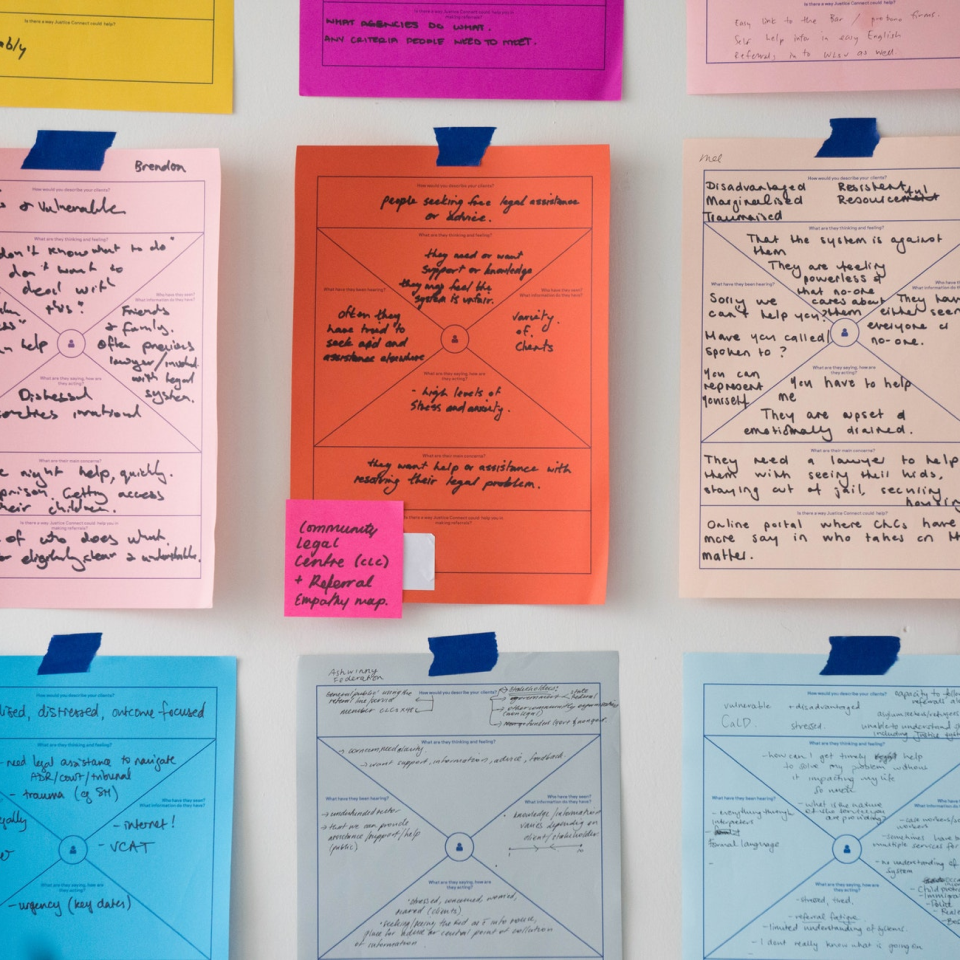 ably
Is there a way Justice Connect could help?
WHAT AGENCIES DO WHAT.
ANY CRITERIA PEOPLE NEED TO MEET.
Is there a way Justice Connect could help?
Easy link to the Bar / probono firms.
Self help info in easy English
Referral in to WLSV as well
Brendon
How would you describe your clients?
Vulnerable
What are they thinking and feeling?
don't know what to do"
don't want to
deal with
this"
Who have they seen?
What information do they have?
Friends
& family.
often previous
lawyer/involved
with legal
system.
help
What are they saying, how are
they acting?
Distressed
sometimes irrational
What are their main concerns?
might help, quickly.
Getting access
their children.
Is there a way Justice Connect could help you in
making referrals?
of who does what.
eligibility clear & understandable.
How would you describe your clients?
people seeking free legal assistance
or advice.
What are they thinking and feeling?
they need or want
support or knowledge
they may feel the
system is unfair.
What have they been hearing?
often they
have tried to
seek aid and
assistance elsewhere
Who have they seen?
What information do they have?
variety
of
clients
What are they saying, how are
they acting?
- high levels of
stress and anxiety.
What are their main concerns?
they want help or assistance with
resolving their legal problem.
Is there a way Justice Connect could help you in
making referrals?
Community
Legal
Centre (CLC)
+ Referral
Empathy map.
Mel
How would you describe your clients?
Disadvantaged Resistent
Marginalised Resourceful
Traumatised
What are they thinking and feeling?
That the system is against
them
They are feeling
powerless &
that no-one
cares about
them
What have they been hearing?
Sorry we
can't help you.
Have you called/
spoken to ?
You can
represent
yourself
They have
either seen
everyone or
no-one.
What are they saying, how are
they acting?
You have to help
me
They are upset &
emotionally drained.
What are their main concerns?
They need a lawyer to help
them with seeing their kids,
staying out of jail, securing
housing
Is there a way Justice Connect could help you in
making referrals?
Online portal where CLCs have
more say in who takes on
matter.
How would you describe your clients?
distressed, outcome focused
What are they thinking and feeling?
- need legal assistance to navigate
ADR/court/tribunal
- trauma (eg SM)
Who have they seen?
What information do they have?
- internet!
- VCAT
What are they saying, how are
they acting?
- urgency (key dates)
Ashwinny
Federation
How would you describe your clients?
General public using the
referral line/portal
member CLCs
stakeholders
State
Federal
other community organisations
What are they thinking and feeling?
want support, information, advice, feedback
What have they been hearing?
that we can provide
assistance/support/help
(public)
Who have they seen?
What information do they have?
knowledge/information
varies depending on
client/stakeholder
What are they saying, how are
they acting?
stressed, concerned, worried,
place for advice or central point of collation
of information
How would you describe your clients?
vulnerable + disadvantaged
CaLD stressed
capacity to follow
referrals
asylum seekers/refugees
unable to understand
including justice system
What are they thinking and feeling?
- how can't get timely help
to solve my problem without
it impacting my life
so much
- what is the nature
of the services you
are providing?
What have they been hearing?
- everything through
interpreters
formal language
Who have they seen?
What information do they have?
workers
- Sometimes have
multiple services for
- no understanding of
system
What are they saying, how are
they acting?
- stressed, tired,
- referral fatigue.
- limited understanding of systems.
- I don't really know what is going on